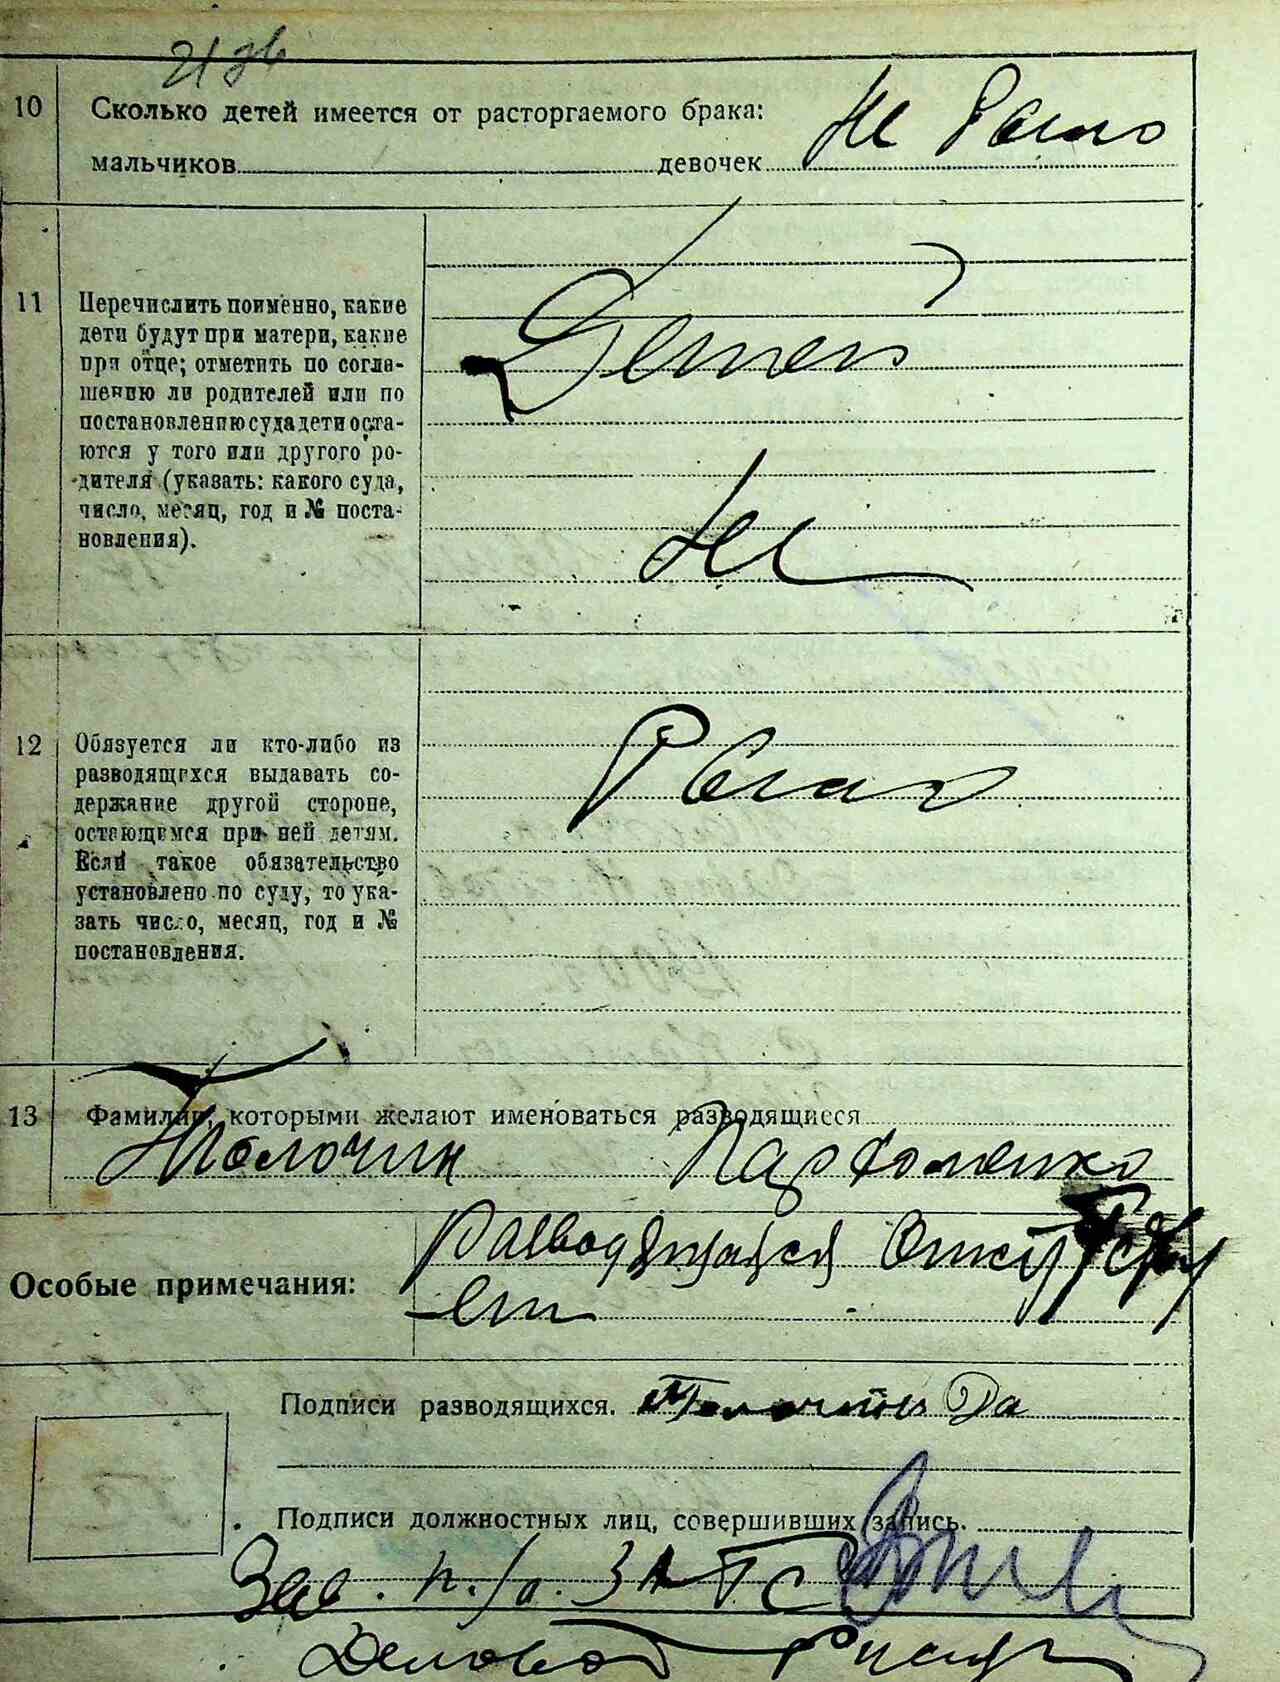 10 Сколько детей имеется от расторгаемого брака:
мальчиков девочек не было
11 Перечислить поименно, какие
дети будут при матери, какие
при отце; отметить по согла-
шению ли родителей или по
постановлению суда дети оста-
ются у того или другого ро-
дителя (указать: какого суда,
число, месяц, год и № поста-
новления).
Детей
не
было
12 Обязуется ли кто-либо из
разводящихся выдавать со-
держание другой стороне,
остающемся при ней детям.
Если такое обязательство
установлено по суду, то ука-
зать число, месяц, год и №
постановления.
13 Фамилии, которыми желают именоваться разводящиеся
Толочин Парфоменко
Особые примечания: разводящаяся отсутству
ет
Подписи разводящихся.
Подписи должностных лиц, совершивших запись.
Зав. п/о. ЗАГС
Деловод